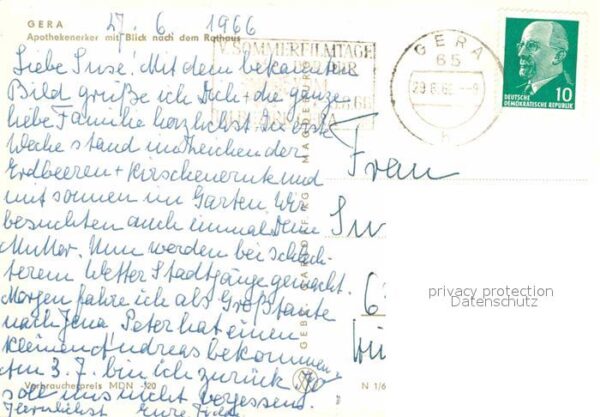 GERA
Apothekenerker mit Blick nach dem Rathaus
27. 6. 1966
V. SOMMERFILMTAGE
GERA
65
28.6.66-9
h
DEUTSCHE
DEMOKRATISCHE REPUBLIK
10
Liebe Suse! Mit dem bekannten
Bild grüße ich Dich + die ganze
liebe Familie herzlichst. Die erste
Woche stand im Zeichen der
Erdbeeren + Kirschenernte und
mit sonnen im Garten. Wir
besuchten auch immal Deine
Mutter. Nun werden bei schlech-
terem Wetter Stadtgänge gemacht.
Morgen fahre ich als Großtante
nach Jena. Peter hat einen
kleinen Andreas bekommen.
Am 3. 7. bin ich zurück.
soll uns nicht vergessen.
Herzlichst Eure
Frau
privacy protection
Datenschutz
GEBR. GARLOFF KG MAGDEBURG
Verbraucherpreis MDN -,20
N 1/6